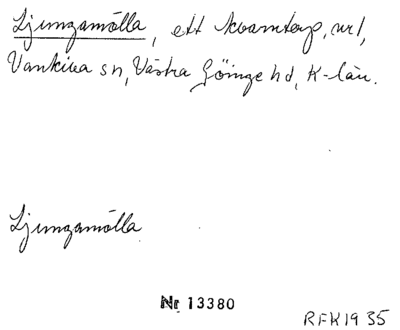 Ljungamölla, ett kvarntorp, nr 1,
Vankiva sn, Västra Göinge hd, K-län.
Ljungamölla
Nr 13380
RFK1935